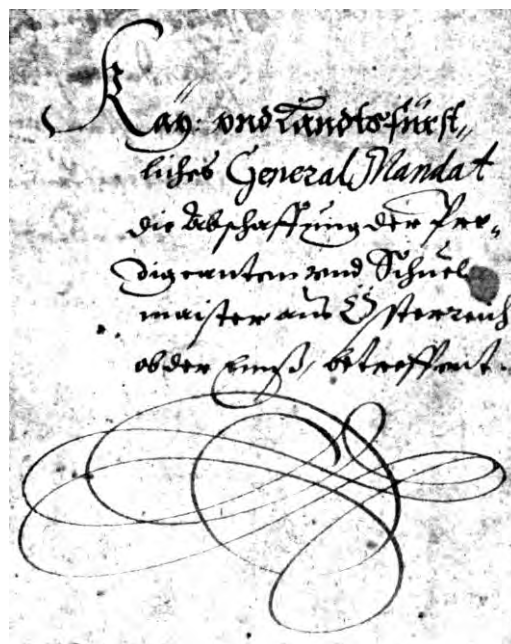 Kaÿ: vnd Landtsfürst„
liches General Mandat
die Abschaffung der Pre„
digcanten vnd Schuel„
maister aus Össterreich
ob der Ennß, betreffent.